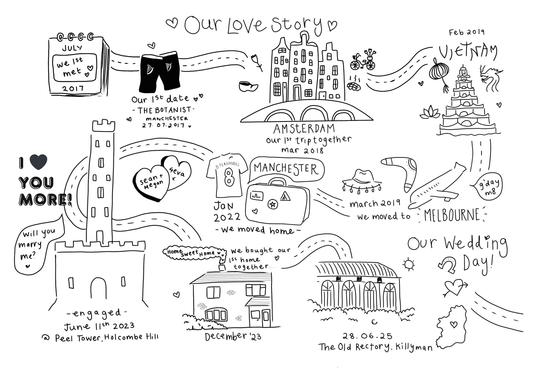 Our Love Story
JULY
we 1st
met
2017
Our 1st date
- THE BOTANIST -
MANCHESTER
27.07.2017
AMSTERDAM
our 1st trip together
mar 2018
Feb 2019
VIETNAM
I
YOU
MORE!
sean +
megan
4eva
8
JAN
2022
MANCHESTER
- we moved home -
march 2019
we moved to
MELBOURNE
g'day
m8
will you
marry
me?
- engaged -
June 11th 2023
@ Peel Tower, Holcombe Hill
Home Sweet Home
we bought our
1st home
together
December '23
Our Wedding
Day!
28.06.25
The Old Rectory, Killyman